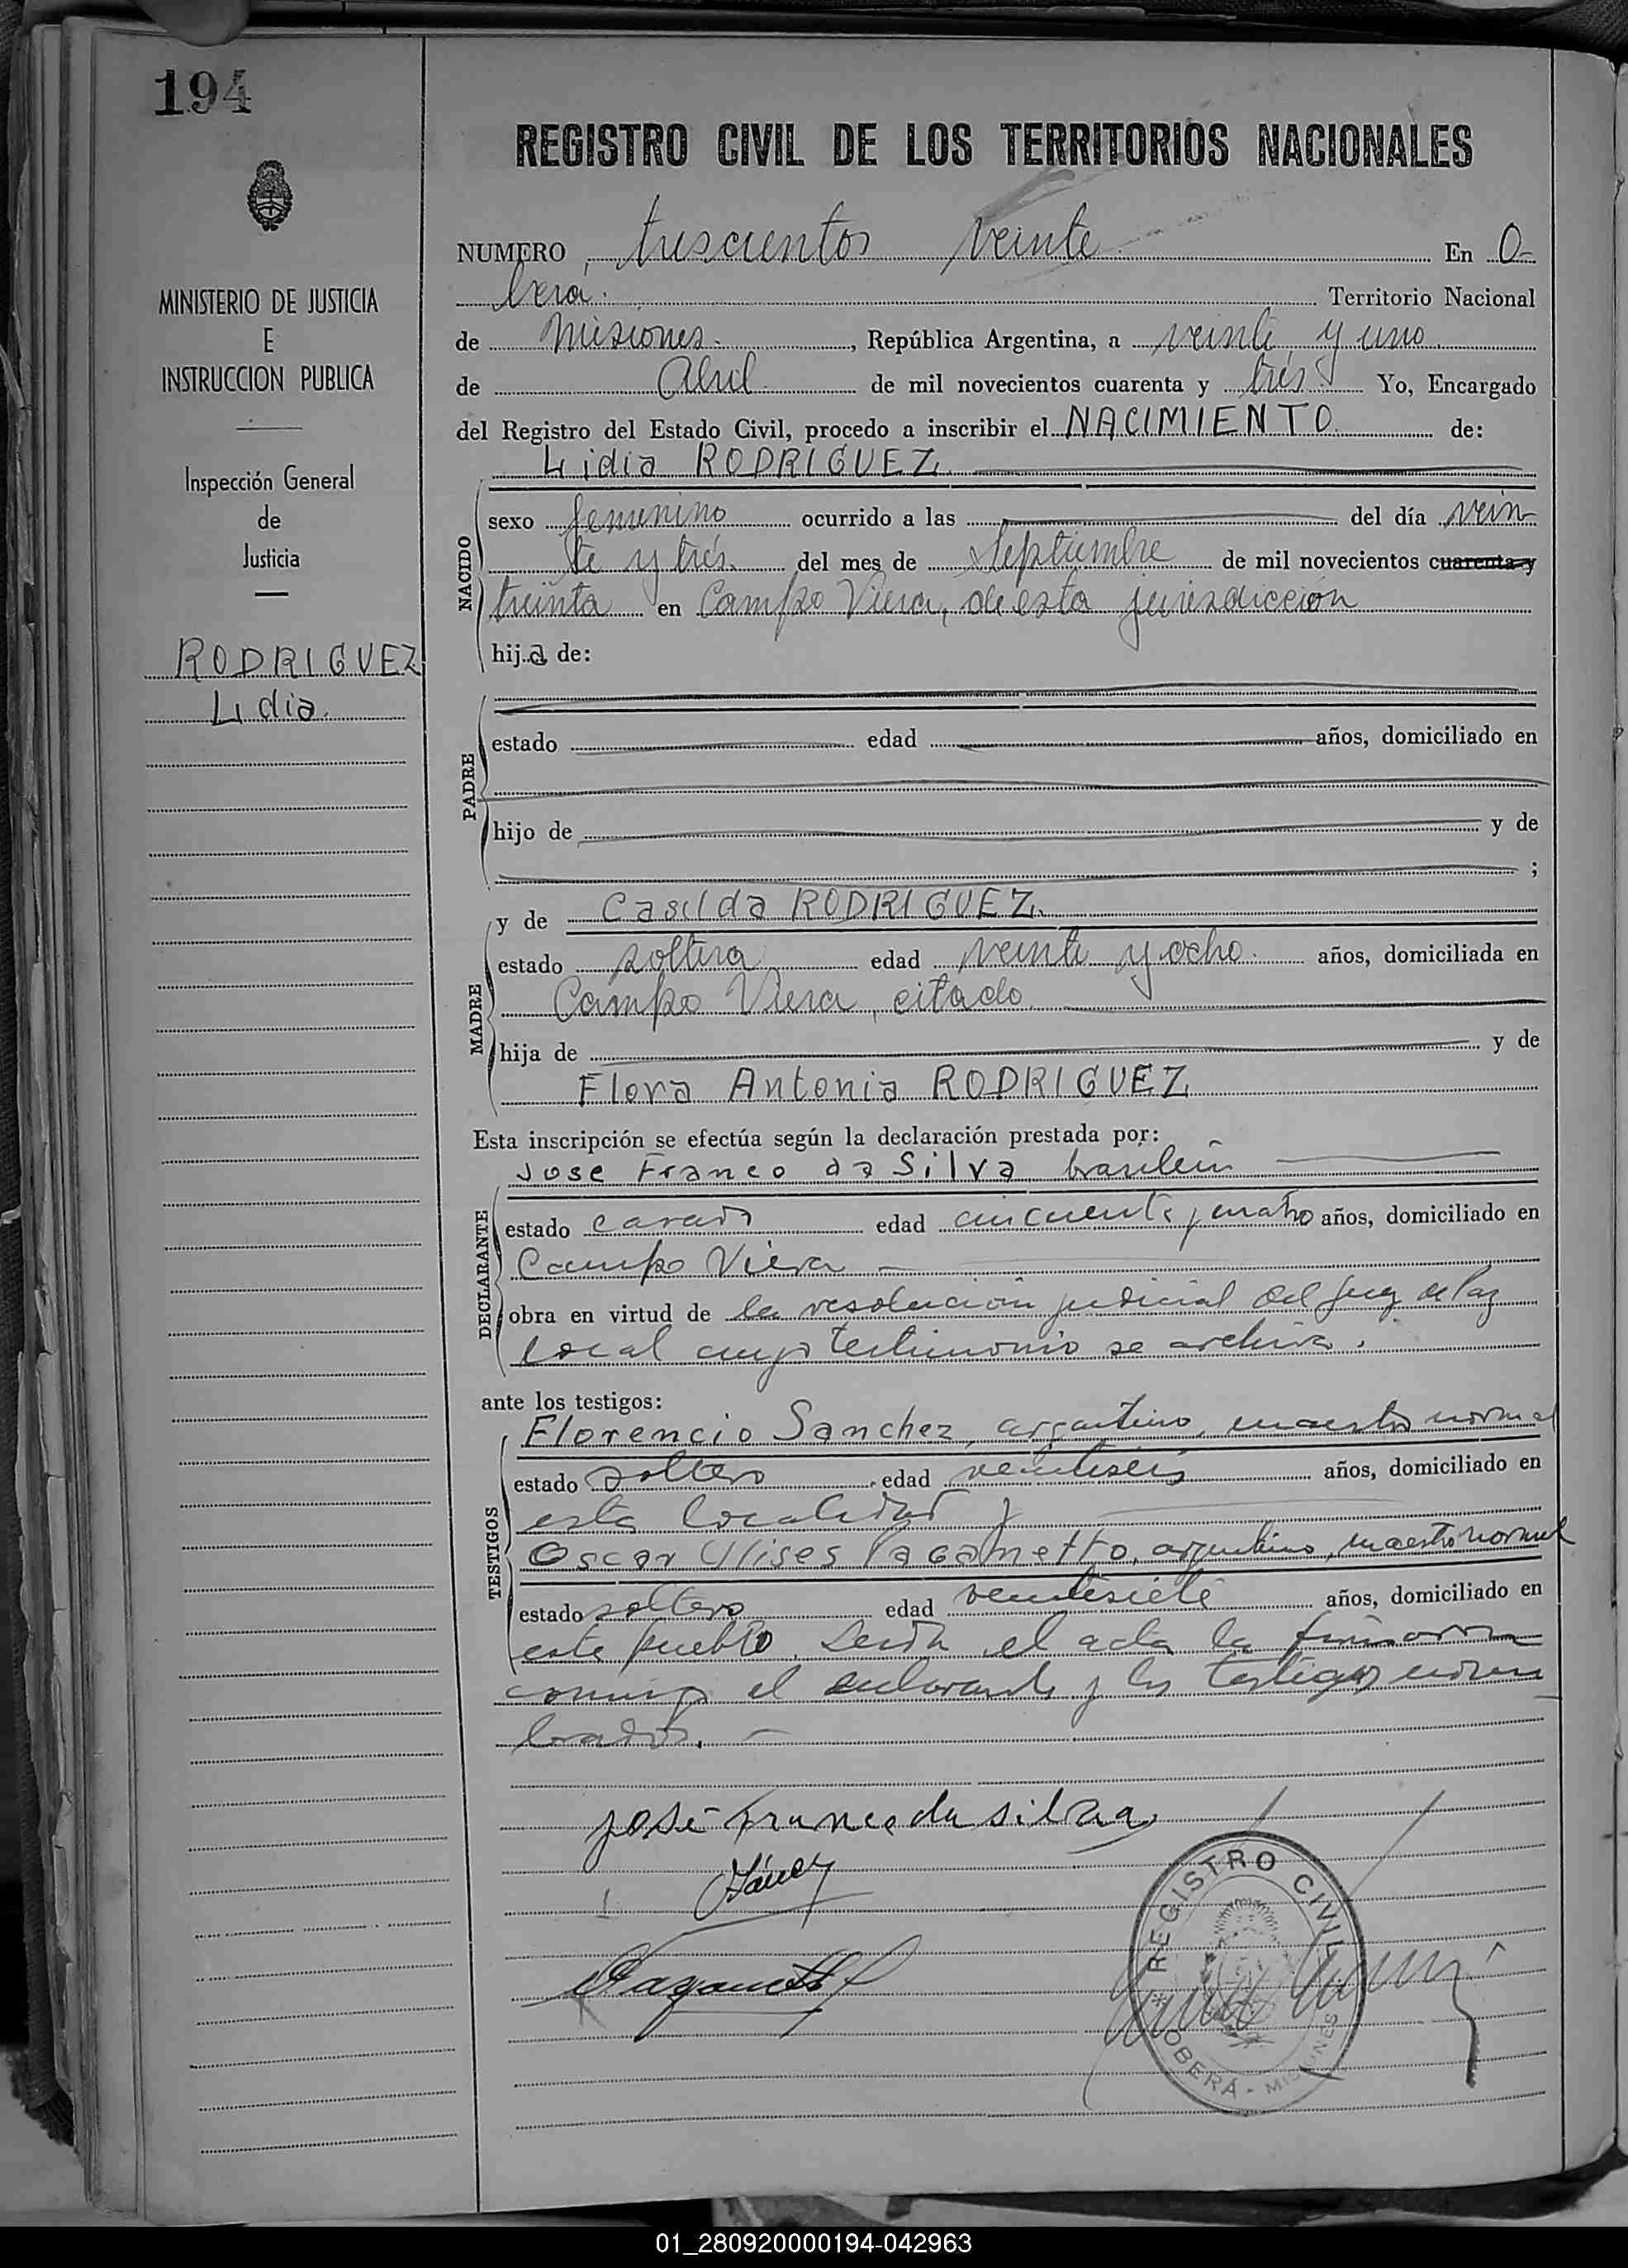 194
MINISTERIO DE JUSTICIA
E
INSTRUCCION PUBLICA
Inspección General
de
Justicia
RODRIGUEZ
Lidia.
REGISTRO CIVIL DE LOS TERRITORIOS NACIONALES
NUMERO trescientos veinte En O-
berá. Territorio Nacional
de Misiones. , República Argentina, a veinte y uno
de Abril de mil novecientos cuarenta y trés Yo, Encargado
del Registro del Estado Civil, procedo a inscribir el NACIMIENTO de:
Lidia RODRIGUEZ
NACIDO
sexo femenino ocurrido a las del día vein
te y trés. del mes de Septiembre de mil novecientos cuarenta y
treinta en Campo Viera, de esta jurisdicción
hija de:
PADRE
estado edad años, domiciliado en
hijo de y de
;
MADRE
y de Casilda RODRIGUEZ
estado soltera edad veinte y ocho. años, domiciliada en
Campo Viera, citado
hija de y de
Flora Antonia RODRIGUEZ
Esta inscripción se efectúa según la declaración prestada por:
DECLARANTE
Jose Franco da Silva, brasileño
estado casado edad cincuenta y cuatro años, domiciliado en
Campo Viera
obra en virtud de la resolucion judicial del Juez de Paz
local cuyo testimonio se archiva.
ante los testigos:
TESTIGOS
Florencio Sanchez, argentino, maestro normal
estado soltero edad veintiseis años, domiciliado en
esta localidad y
Oscar Ulises Paganetto, argentino, maestro normal
estado soltero edad veintisiete años, domiciliado en
este pueblo. Leida el acta la firmaron
conmigo el declarante y los testigos nom
brados.
José Franco da silva
Paganetto
REGISTRO CIVIL
OBERÁ - MISIONES
01_280920000194-042963